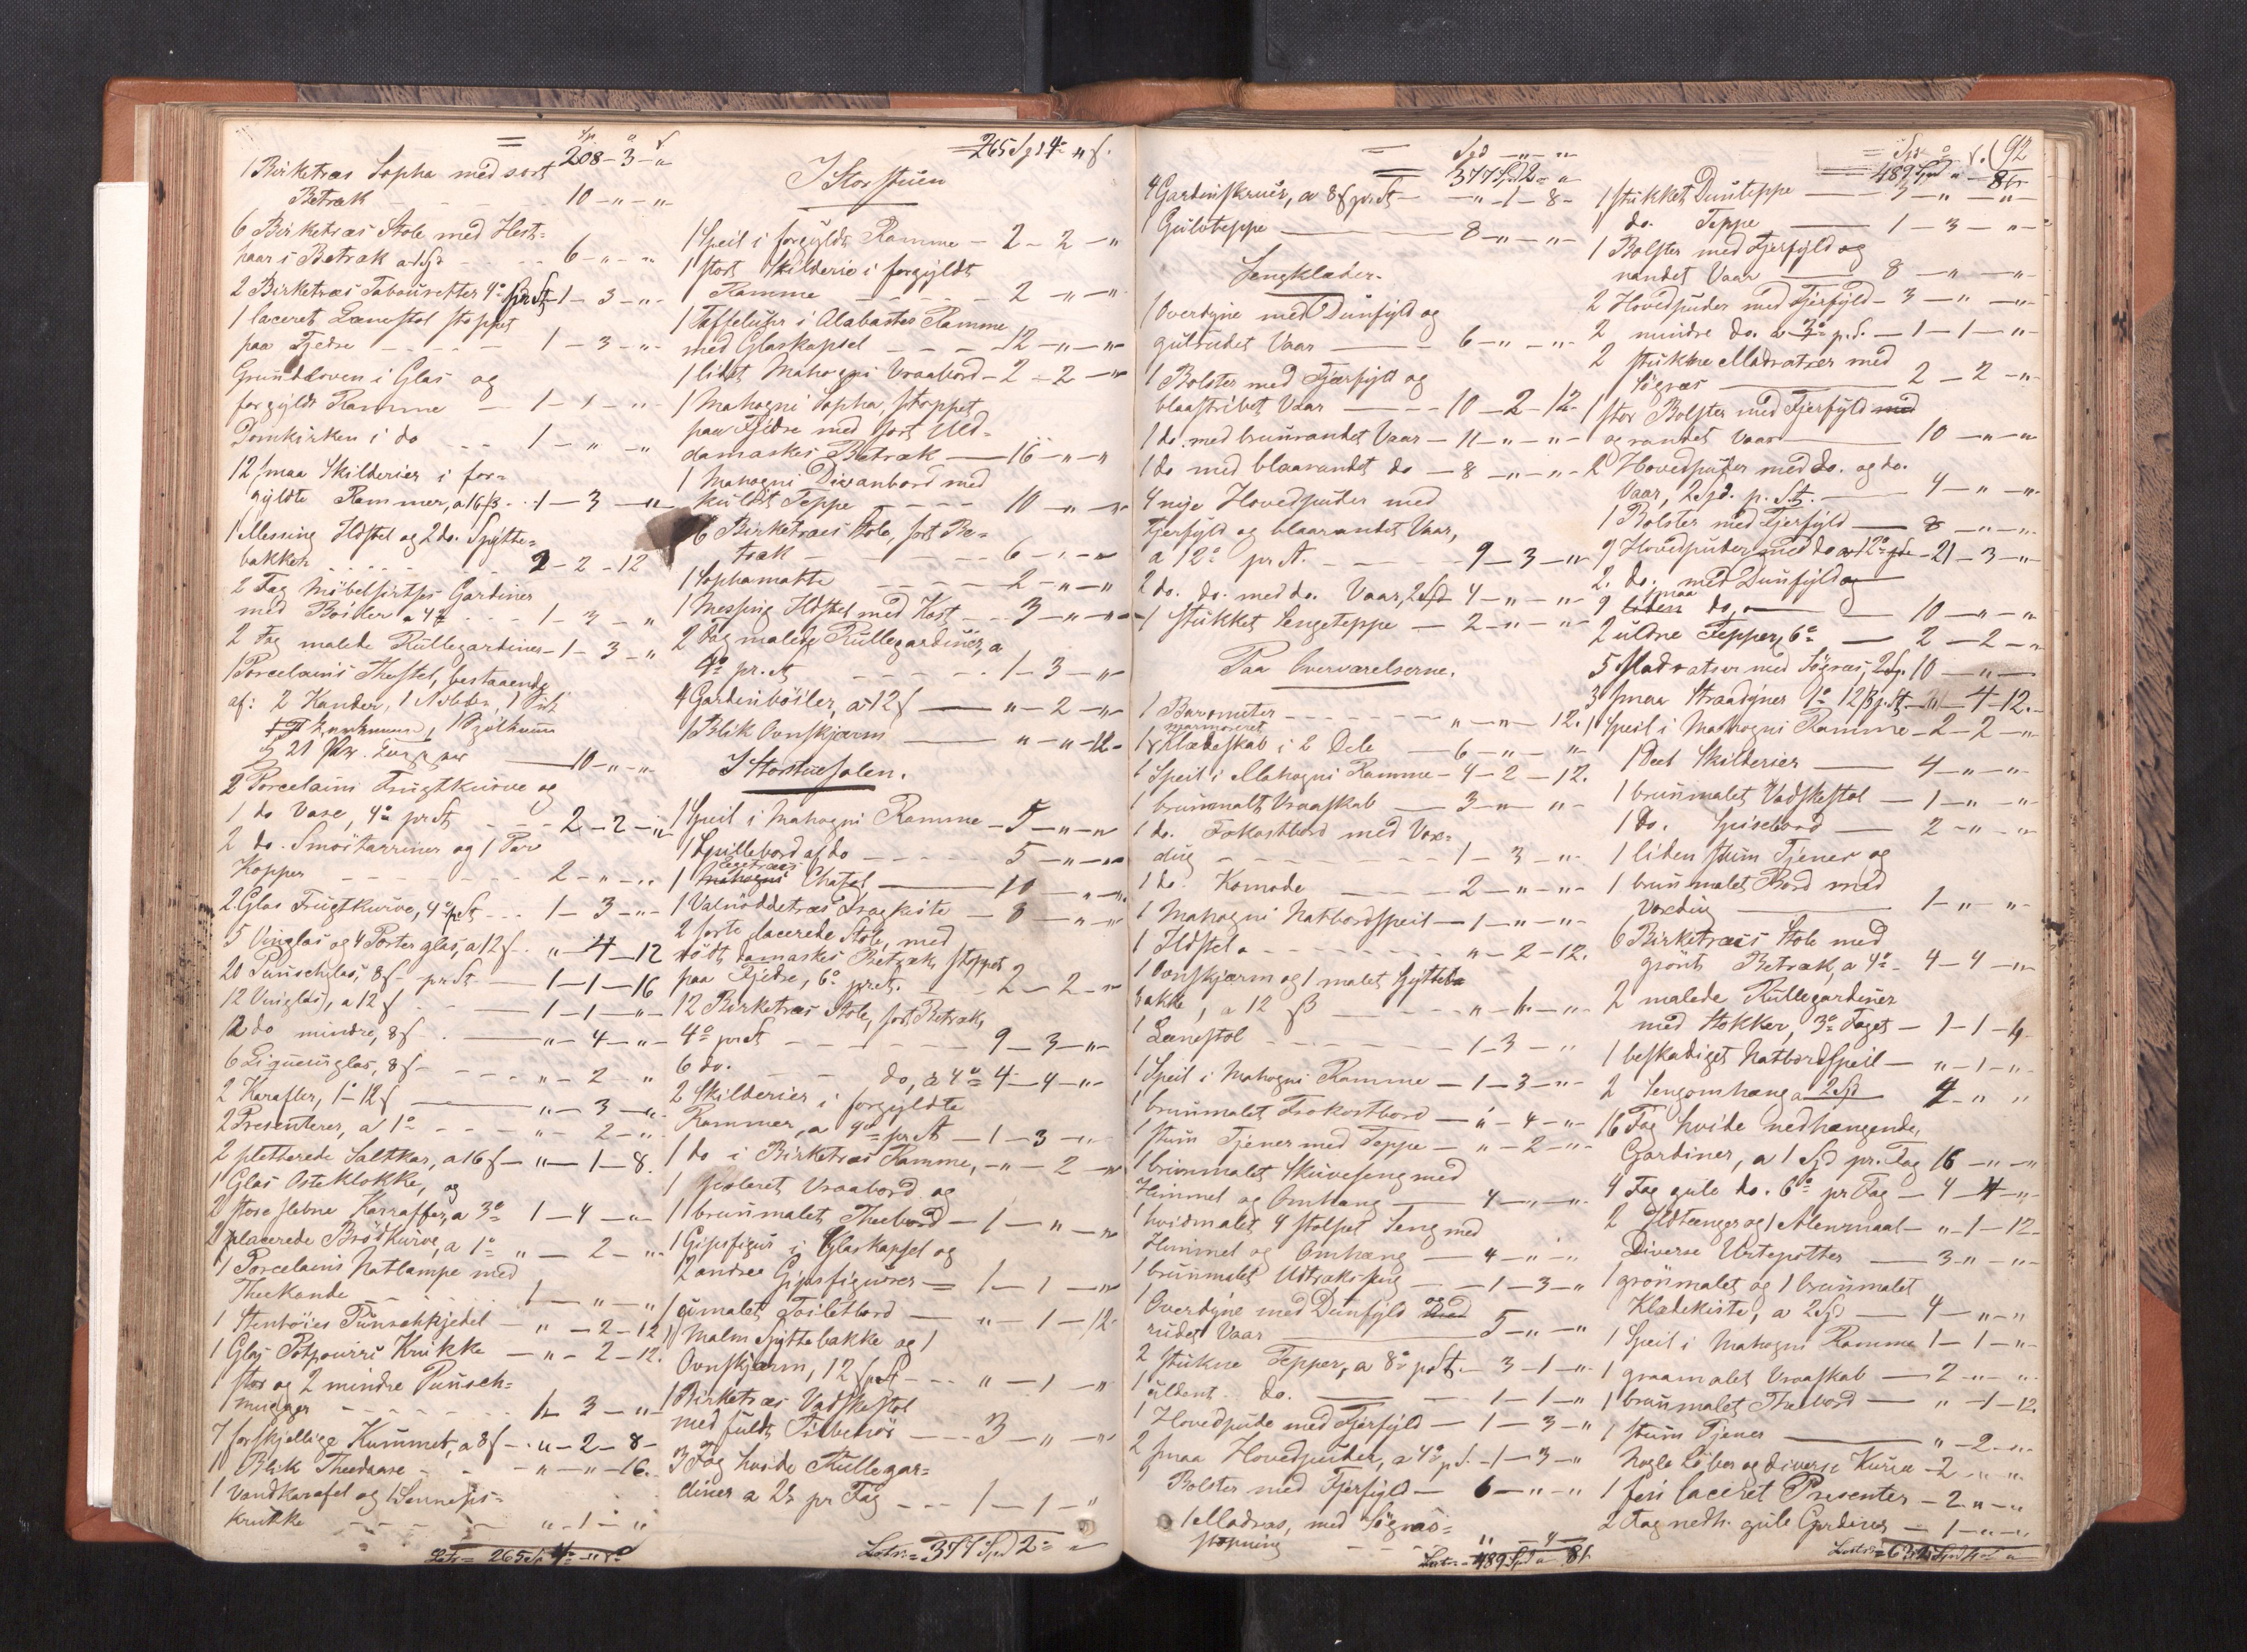 208 - 3 - "
1 Birketræs Sopha med sort
Betræk - - - 10 - " - "
6 Birketræs Stole med Heste-
haar i Betræk a 1 Spd - - 6 - " - "
2 Birketræs Tabouretter 4 o pr St - 1 - 3 - "
1 laceret Lænestol stoppet
paa Fjedre - - - 1 - 3 - "
Grundloven i Glas og
forgyldt Ramme - 1 - 1 - "
Domkirken i do - - 1 - " - "
12 smaa Skilderier i for-
gyldte Rammer, a 16 ß - 1 - 3 - "
1 Messing Ildstel og 2 do. Spytte-
bakker - - - 2 - 2 - 12
2 Fag Möbelsirtses Gardiner
med Böiler a 4 o - - 1 - 3 - "
2 Fag malede Rullegardiner - 1 - 3 - "
1 Porcelains Thestel, bestaaende
af: 2 Kander, 1
10 - " - "
2 Porcelains Frugtkurve og
1 do Vase, 4 o pr St - - 2 - 2 - "
2 do. Smörtarriner og 1 Par
Kopper - - - 2 - " - "
2 Glas Frugtkurve, 4 o pr St - - 1 - 3 - "
5 Vinglas og 4 Porterglas, a 12 ß - " - 4 - 12
20 Punschglas, 8 ß pr St. - 1 - 1 - 16
12 Vinglas, a 12 ß - 1 - 1 - "
12 do mindre, 8 ß - " - 4 - "
6 Liqueurglas, 8 ß - - " - 2 - "
2 Karafler, 1 - 12 ß - " - 3 - "
2 Presenterer, a 1 o - - " - 2 - "
2 pletterede Saltkar, a 16 ß - " - 1 - 8.
1 Glas Osteklokke, og
2 store slebne Karrafler, a 3 o 1 - 4 - "
2 placerede Brödkurve, a 1 o " - 2 - "
1 Porcelains Natlampe med
Theekande - - 1 - " - "
1 Stentöies Punschkjedel - " - 2 - 12
1 Glas Potpourri Krukke - " - 2 - 12.
1 stor og 2 mindre Punsch-
mugger - - - 3 - "
7 forskjellige Kummer, a 8 ß - " - 2 - 8 -
1 Blik Theedaase - - " - " - 16.
1 Vandkarafel og 1 Senneps-
krukke - - - " - 1 - "
Latus 265 Spd 4 o " ß
265 Spd 4 o " ß.
I Storstuen
1 Speil i forgyldt Ramme - 2 - 2 - "
1 stort Skilderie i forgyldt
Ramme - - - 2 - " - "
1 Taffeluhr i Alabastes Ramme
med Glaskapsel - - - 12 - " - "
1 lidet Mahogni Vraabord - 2 - 2 - "
1 Mahogni Sopha, stoppet
paa Fjedre med sort Uld-
damaskes Betræk - 16 - " - "
1 Mahogni Divanbord med
Teppe - - - 10 - " - "
6 Birketræes Stole, sort Be-
træk - - - 6 - " - "
1 Sophamatte - - - 2 - " - "
1 Messing Ildstel med Kost - - 3 - " - "
2 Fag malede Rullegardiner, a
4 o pr. St - - - 1 - 3 - "
4 Gardinböiler, a 12 ß - " - 2 - "
1 Blik Ovnskjærm - " - " - 12 -
I Storstuesalen.
1 Speil i Mahogni Ramme - 5 - " - "
1 Spillebord af do - - - 5 - " - "
1 Chatol - 10 - " - "
1 Valnöddetræs Dragkiste - 8 - " - "
2 sorte lacerede Stole, med
rödt damaskes Betræk stoppet
paa Fjedre, 6 o pr St. - - 2 - 2 - "
12 Birketræs Stole, sort Betræk,
4 o pr St - - - 9 - 3 - "
6 do. - - do, a 4 o 4 - 4 - "
2 Skilderier i forgyldte
Rammer, a 4 o pr St - 1 - 3 - "
1 do i Birketræs Ramme, - " - 2 - "
1 poleret Vraabord og
1 brunmalet Theebord - 1 - " - "
1 Gipsfigur i Glaskapsel og
2 andre Gipsfigurer - 1 - 1 - "
1 umalet Toiletbord - " - 1 - 12.
1 Malm Spyttebakke og 1
Ovnskjærm, 12 ß pr St - - " - 1 - "
1 Birketræs Vadskestol
med fuldt Tilbehör - - 3 - " - "
3 Fag hvide Rullegar-
diner a 2 o pr Fag - - 1 - 1 - "
Latus 377 Spd 2 o "
377 Spd 2 o "
4 Gardinskruer, a 8 ß pr St - " - 1 - 8 -
1 Gulvteppe - 8 - " - "
Sengklæder.
1 Overdyne med Dunfyld og
gulrudet Vaar - 6 - " - "
1 Bolster med Fjærfyld og
blaastribet Vaar - 10 - 2 - 12
1 do. med brunrandet Vaar - 11 - " - "
1 do med blaarandet do - 8 - " - "
4 nye Hovedpuder med
Fjerfyld og blaarandet Vaar,
a 12 o pr St. - - - 9 - 3 - "
2 do. do. med do. Vaar, 2 Spd 4 - " - "
1 stukket Sengeteppe - 2 - " - "
Paa Overværelserne.
1 Barometer - - - " - " - 12.
1 Klædeskab i 2 Dele - 6 - " - "
1 Speil i Mahogni Ramme - 4 - 2 - 12.
1 brunmalt Vraaskab - 3 - " - "
1 do. Frokostbord med Vox-
dug - - - 1 - 3 - "
1 do. Komode - 2 - " - "
1 Mahogni Natbordspeil - 1 - " - "
1 Ildstel - - - " - 2 - 12.
1 Ovnskjærm og 1 malet Spytte-
bakke, a 12 ß - - " - 1 - "
1 Lænestol - - - 1 - 3 - "
1 Speil i Mahogni Ramme - 1 - 3 - "
1 brunmalet Frokostbord - " - 4 - "
1 stum Tjener med Teppe - " - 2 - "
1 brunmalet Skuveseng med
Himmel og Omhæng - 4 - " - "
1 hvidmalet 4 stolpet Seng med
Himmel og Omhæng - 4 - " - "
1 brunmalet Udtræksseng - 1 - 3 - "
1 Overdyne med Dunfyld og
rudet Vaar - 5 - " - "
2 stukne Tepper, a 8 o pr St. - 3 - 1 - "
1 uldent do. - 1 - 1 - "
1 Hovedpude med Fjerfyld - 1 - 3 - "
2 smaa Hovedpuder, a 4 o p. S. - 1 - 3 - "
Bolster med Fjerfyld - 6 - " - "
1 Madras, med Sögræs-
stopning - - - " - 4 -
Latus 489 Spd " 8 ß
92
489 Spd " - 8 ß
1 stukket Dunteppe - 3 - " - "
1 do. Teppe - 1 - 3 - "
1 Bolster med Fjerfyld og
randet Vaar - 8 - " - "
2 Hovedpuder med Fjerfyld - 3 - " - "
2 mindre do. a 3 o p. S. - 1 - 1 - "
2 stukne Madratser med
Sögræs - 2 - 2 - "
1 stor Bolster med Fjerfyld med
og randet Vaar - 10 - " - "
2 Hovedpuder med do. og do.
Vaar, 2 Spd. p. St. - 4 - " - "
1 Bolster med Fjerfyld - 8 - " - "
9 Hovedpuder med do a 12 o - 21 - 3 - "
2. do. med Dunfyld og
9 smaa do, - 10 - " - "
2 uldne Tepper, 6 o - 2 - 2 - "
5 Madratser med Sögræs, 2 Sp. 10 - " -
3 smaa Straadyner 1 o 12 ß p. St. - " - 4 - 12.
1 Speil i Mahogni Ramme - 2 - 2 - "
1 Deel Skilderier - 4 - " - "
1 brunmalet Vadskestol - 1 - " - "
1 do. Spisebord - 2 - " - "
1 liden stum Tjener og
1 brunmalet Bord med
Voxdug - 1 - " - "
6 Birketræs Stole med
grönt Betræk, a 4 o - 4 - 4 - "
2 malede Rullegardiner
med Stokker, 3 o Faget - 1 - 1 - "
1 beskadiget Natbordspeil - " - 1 - "
2 Sengomhæng a 2 Spd 4 - " "
16 Fag hvide nedhængende,
Gardiner, a 1 Spd pr. Fag 16 - " - "
4 Fag gule do. 6 o pr Fag - 4 - 4 - "
2 Ildtænger og 1 Alenmaal - " - 1 - 12 -
Diverse Urtepotter - 3 - " - "
1 grönmalet og 1 brunmalet
Klædekiste, a 2 Spd - 4 - " - "
1 Speil i Mahogni Ramme 1 - 1 - "
1 graamalet Vraaskab - 2 - " - "
1 brunmalet Theebord - " - 1 - 12.
1 stum Tjener - " - 2 - "
Nogle Löber og diverse Kurve - 2 - " "
1 fin laceret Presenter - 2 " - "
2 Fag nedh. gule Gardiner - 1 - " - "